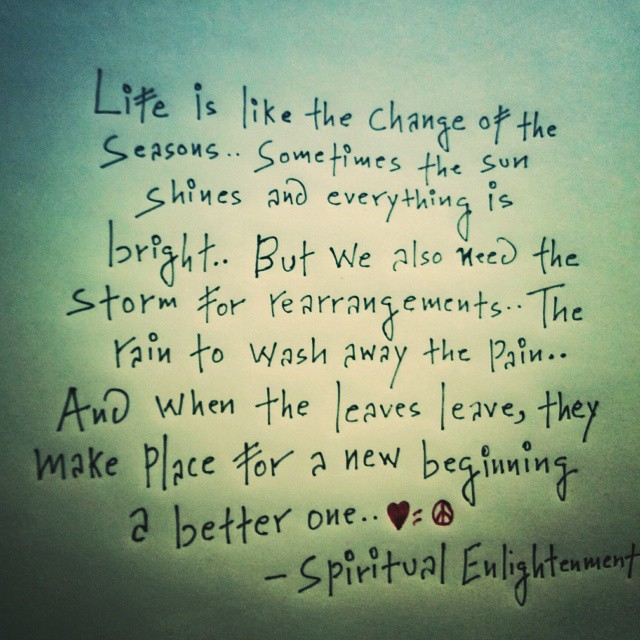 Life is like the change of the
Seasons.. Sometimes the sun
shines and everything is
bright.. But we also need the
storm for rearrangements.. The
rain to wash away the pain..
And when the leaves leave, they
make place for a new beginning
a better one.. ♥ = ☮
- Spiritual Enlightenment